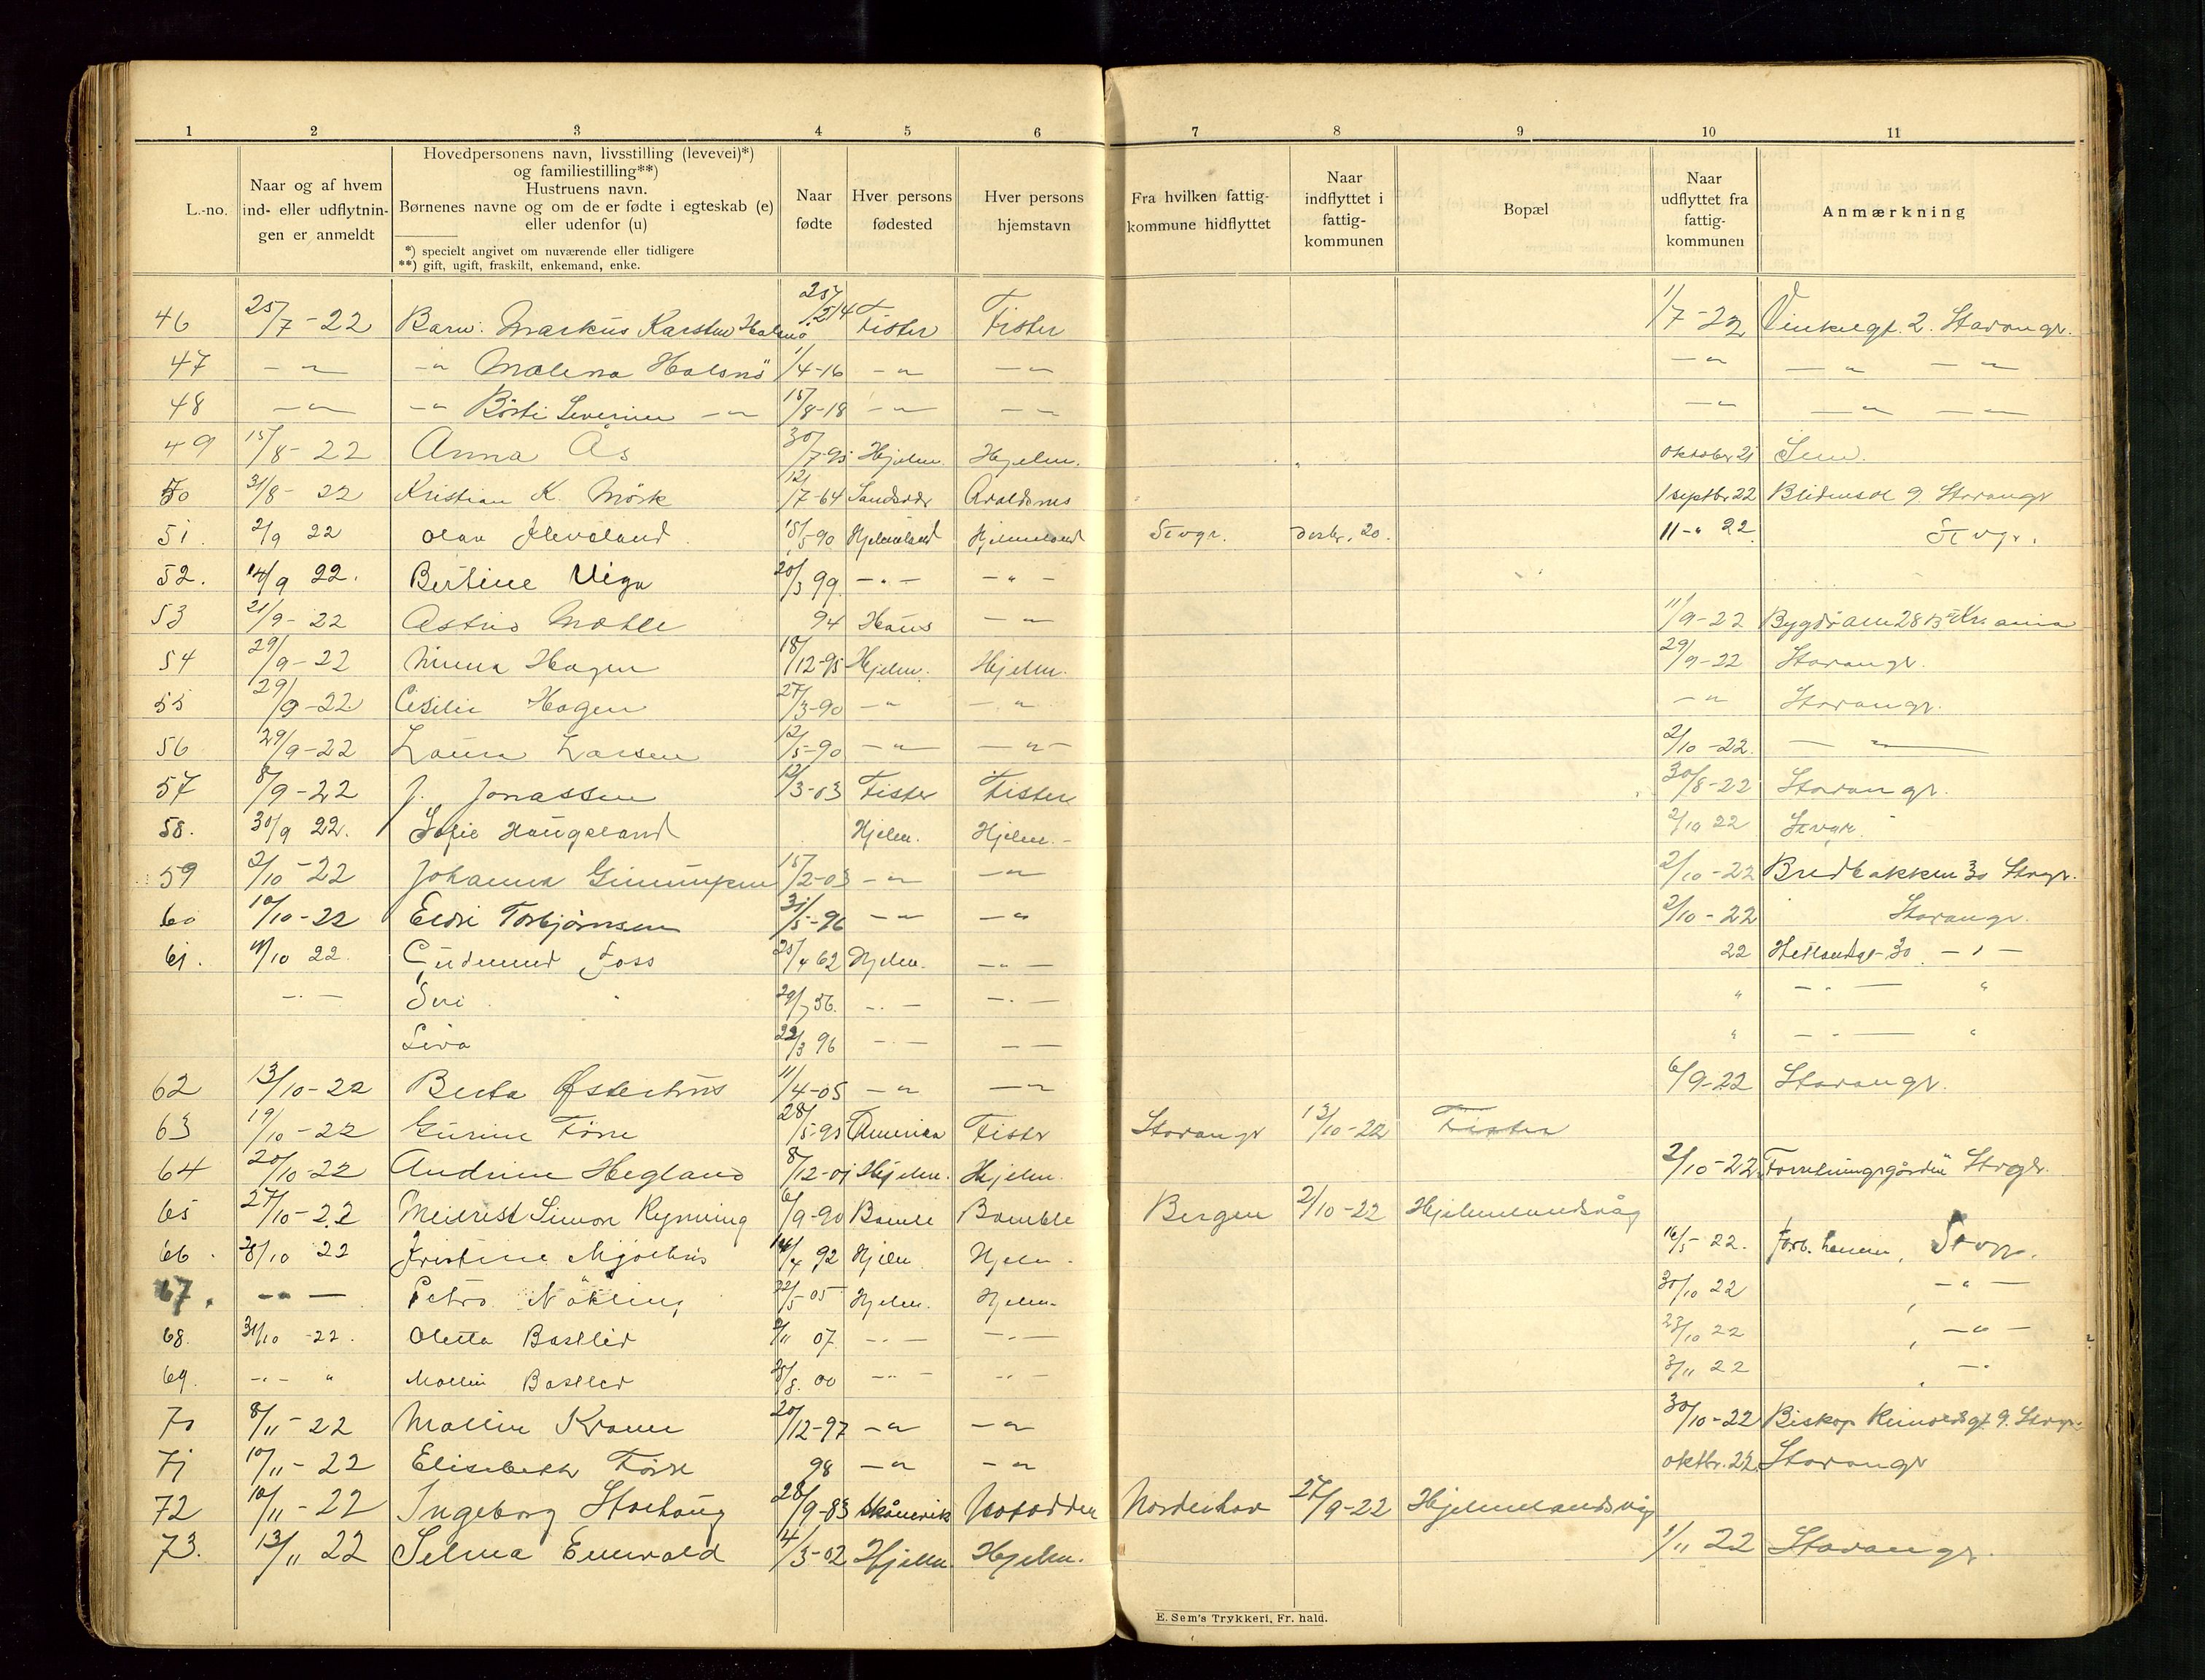 1 2 3 4 5 6 7 8 9 10 11
L.-no.
Naar og af hvem
ind- eller udflytnin-
gen er anmeldt
Hovedpersonens navn, livsstilling (levevei)*)
og familiestilling**)
Hustruens navn.
Børnenes navne og om de er fødte i egteskab (e)
eller udenfor (u)
*) specielt angivet om nuværende eller tidligere
**) gift, ugift, fraskilt, enkemand, enke.
Naar
fødte
Hver persons
fødested
Hver persons
hjemstavn
Fra hvilken fattig-
kommune hidflyttet
Naar
indflyttet i
fattig-
kommunen
Bopæl
Naar
udflyttet fra
fattig-
kommunen
Anmærkning
46 25/7 - 22 Barn: Markus Karsten Halsnö 25/2 14 Fister Fister 1/7 - 22 Vinkelgt. 2. Stavangr.
47 — " — — " Malena Halsnö 1/4-16 — " — " — " — " — "
48 — " — — " Severine — " 15/8-18 — " — — — " — " — —
49 15/8 - 22 Anna Ås 30/7-95 Hjelm. Hjelm. oktober 21 Sem.
50 31/8 - 22 Kristian K. Mörk 12/7-64 Avaldsnes 1 septbr 22 Blidensol 9. Stavangr
51. 2/9 22 Olav Kleveland 15/5-90 Hjelmeland Hjelmeland Stvgr. Desbr. 20. 11 - " 22 Stvgr.
52. 14/9 22. Bertine Viga 20/3 99. — " — — " —
53 21/9 - 22 94 Haus — " 11/9-22 Bygdö
54 29/9 - 22 Hagen 18/12-95 Hjelm. Hjelm. 29/9-22 Stavangr.
55 29/9 - 22 Cisilie Hagen 27/3-90 — " — " — " Stavangr.
56 29/9-22 Laura Larsen 12/5-90 — " — — " — 2/10 - 22. — " —
57 8/9 - 22 J. Jonassen 12/3-03 Fister Fister 30/8-22 Stavangr.
58. 30/9 22. Sofie Haugeland Hjelm. Hjelm. 2/10 22 Stvgr.
59 2/10 - 22 Johanna 15/2-03 — " — " 2/10 - 22 Bredbakken 30 Stvgr.
60 10/10-22 Eldri Torbjörnsen 31/5-96 — " — " 2/10 - 22 Stavangr.
61. 11/10 22. Gudmund Foss 25/4 62 Hjelm. — " — 22 Hetlandgt-30. — " —
— " — Siri 29/7 56. — " — — " — " — " — "
Siva 22/3 96 — " — — — " — " — "
62 13/10-22 Berta Østerhus 11/4-05 — " — " 6/9-22 Stavangr.
63 19/10 - 22 Gurine 28/5-95 America Fistr Stavangr 13/10-22 Fister
64 20/10-22 Andrine Hegland 8/12-01 Hjelm. Hjelm. 2/10-22 Forretningsgården Stvgr.
65 27/10-22 Meierist Simon Rynning 6/9-90 Bamle Bamble Bergen 2/10-22 Hjelmelandsvåg
66. 28/10 22 Kristine Mjölhus 14/4 92 Hjelm Hjelm. 16/5 22. Stvgr.
67. — " — Petra Nökling 22/5 05 Hjelm. Hjelm. 30/10 22 — " —
68. 31/10 22. Oletta Bastlid 2/11 07. — " — — " — 23/10 22 — " —
69. — " — " Mallin Bastlid 25/8. 00 — " — — " — 3/11 22 — "
70 8/11 - 22 Mallin 20/12-97 — " — " 30/10-22 Biskop Reinoldsgt. 9. Stvgr.
71 10/11 - 22 Elisabeth 98 — " — " oktbr. 22 Stavangr
72 10/11 - 22 Ingeborg Storhaug 28/9-83 Skånevik Notodden Norderhov 27/9-22 Hjelmelandsvåg
73. 13/11 22 Selma Enevald 4/3-02 Hjelm. Hjelm. 1/11 22 Stavangr.
E. Sem's Trykkeri, Fr. hald.